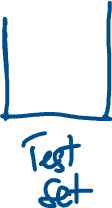 Test
Set